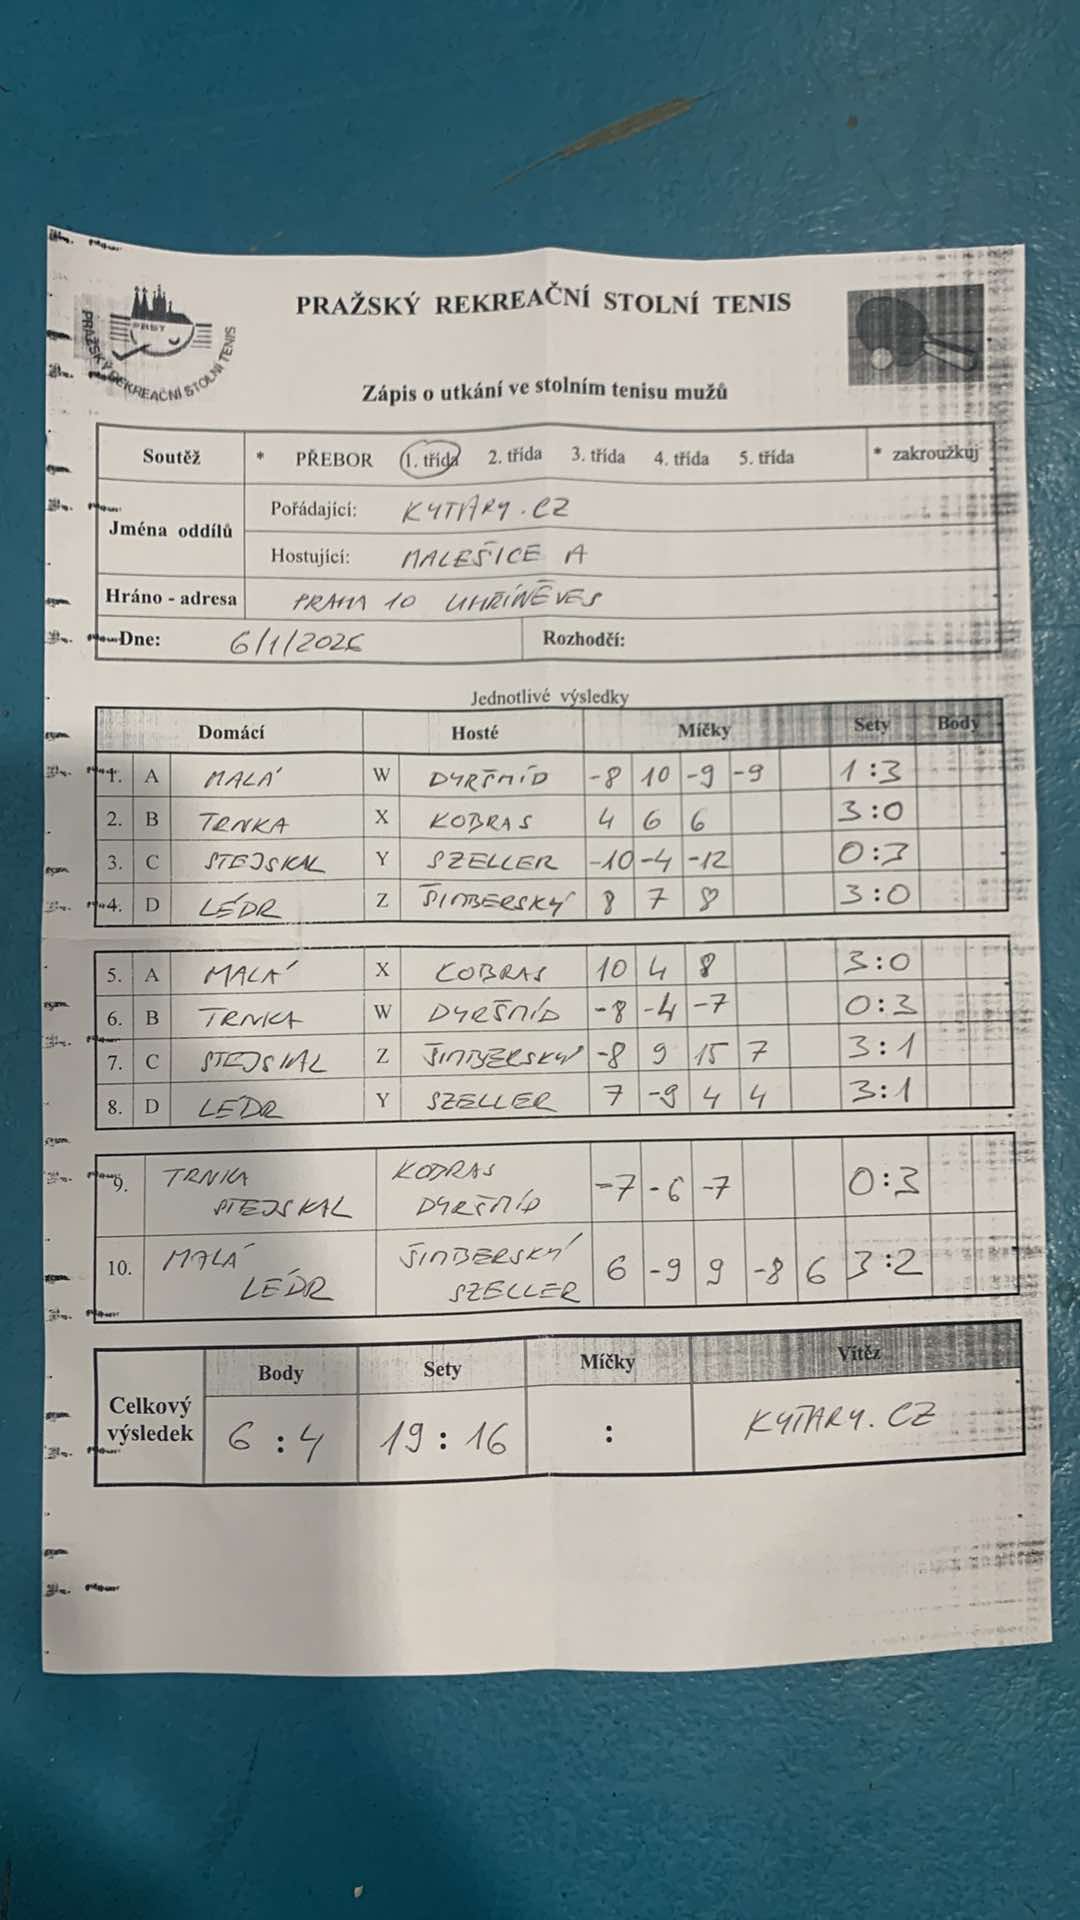 PRAŽSKÝ REKREAČNÍ STOLNÍ TENIS
PRST
PRAŽSKÝ REKREAČNÍ STOLNÍ TENIS
Zápis o utkání ve stolním tenisu mužů
Soutěž * PŘEBOR 1. třída 2. třída 3. třída 4. třída 5. třída * zakroužkuj
Jména oddílů
Pořádající: KYTARY.CZ
Hostující: MALEŠICE A
Hráno - adresa PRAHA 10 UHŘÍNĚVES
Dne: 6/1/2026 Rozhodčí:
Jednotlivé výsledky
Domácí Hosté Míčky Sety Body
1. A MALÁ W DYRŠMÍD -8 10 -9 -9 1:3
2. B TRNKA X KOBRAS 4 6 6 3:0
3. C STEJSKAL Y SZELLER -10 -4 -12 0:3
4. D LÉDR Z ŠIMBERSKÝ 8 7 8 3:0
5. A MALÁ X KOBRAS 10 4 8 3:0
6. B TRNKA W DYRŠMÍD -8 -4 -7 0:3
7. C STEJSKAL Z ŠIMBERSKÝ -8 9 15 7 3:1
8. D LÉDR Y SZELLER 7 -9 4 4 3:1
9. TRNKA STEJSKAL KOBRAS DYRŠMÍD -7 -6 -7 0:3
10. MALÁ LÉDR ŠIMBERSKÝ SZELLER 6 -9 9 -8 6 3:2
Celkový výsledek
Body Sety Míčky Vítěz
6:4 19:16 : KYTARY.CZ